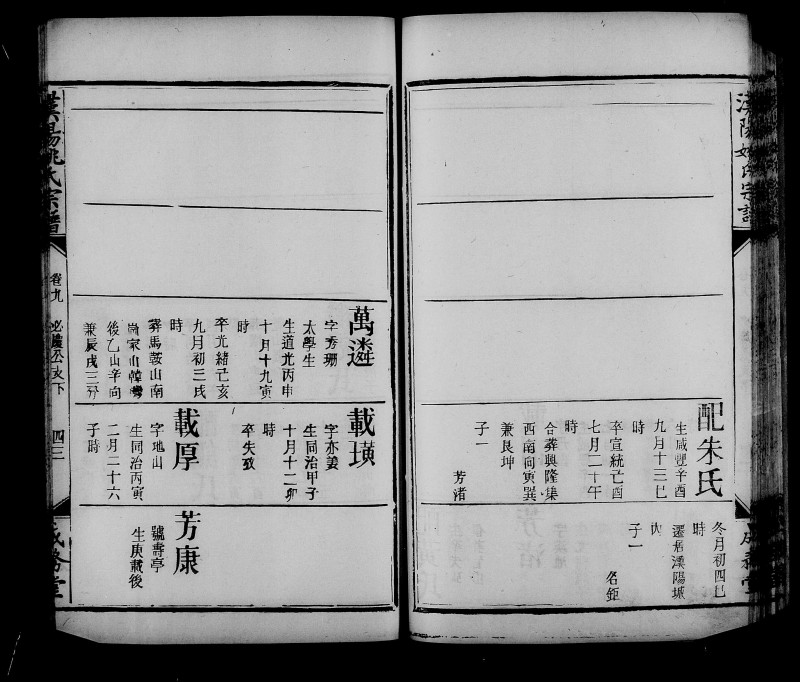 漢陽姚氏宗譜
成務堂
配朱氏
生咸豐辛酉
九月十三巳
時
卒宣統己酉
七月二十午
時
合葬興隆集
西南向寅巽
兼艮坤
子一
芳渚
冬月初四巳
時
遷居漢陽城
內
子一
名鉅
萬遴
字秀珊
太學生
生道光丙申
十月十九寅
時
卒光緒己亥
九月初三戌
時
葬馬鞍山南
後乙山辛向
兼辰戌三分
載璜
字亦姜
生同治甲子
十月十二卯
時
卒失攷
載厚
字地山
生同治丙寅
二月二十六
子時
芳康
號壽亭
生庚戴後
漢陽姚氏宗譜
卷九
四三
成務堂